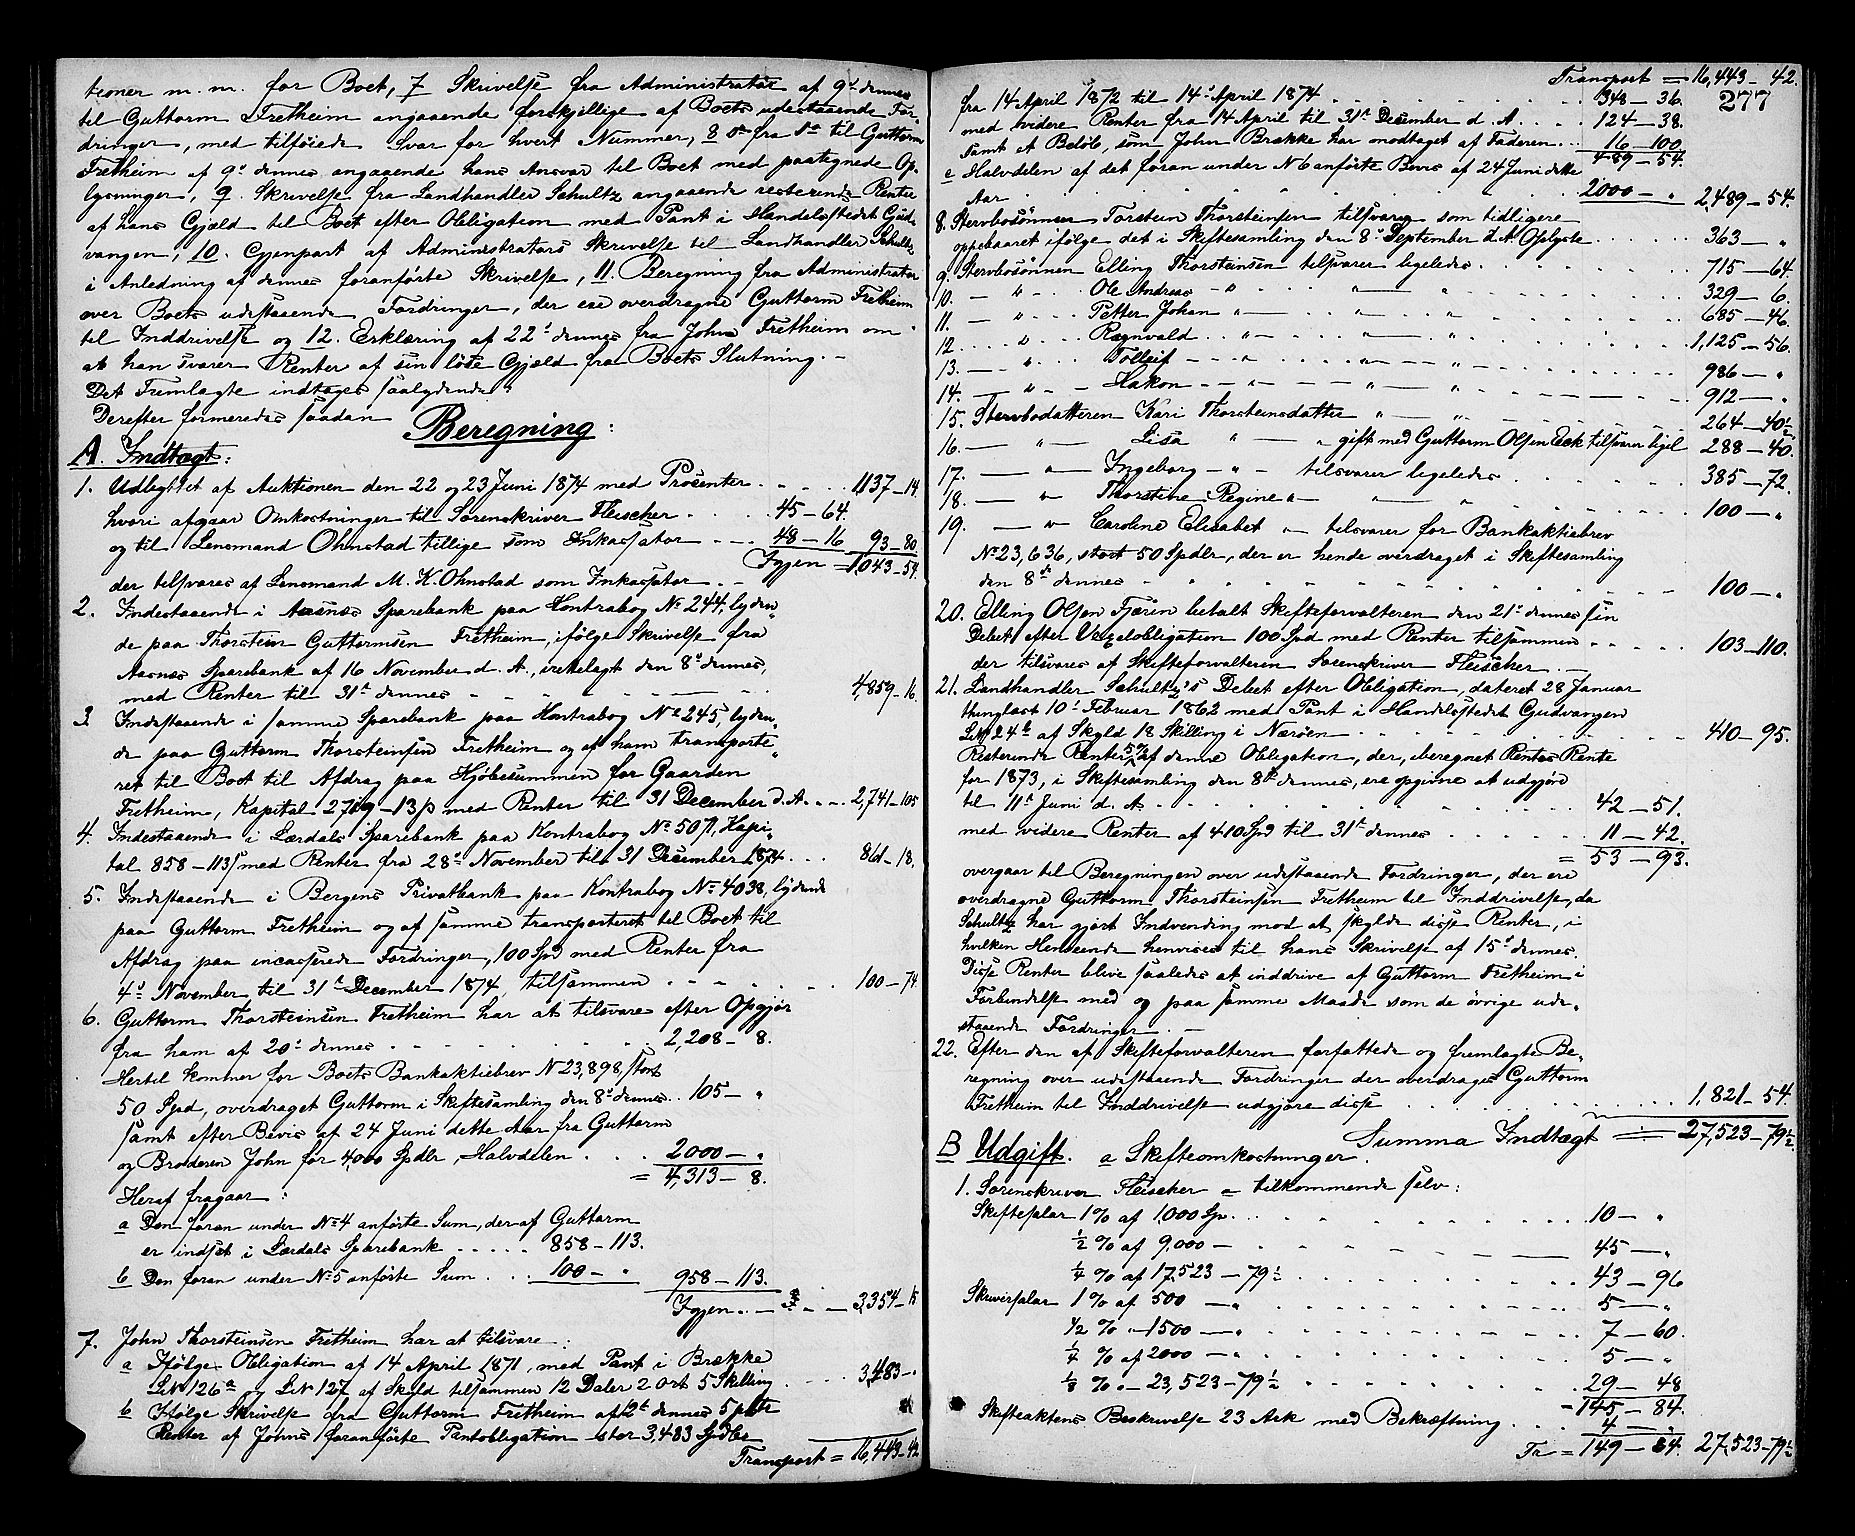 tioner m. m. for Boet, 7 Skrivelse fra Administrator af 9de dennes
til Guttorm Fretheim angaaende forskjellige af Boets udestaaende For-
dringer, med tilföiede Svar for hvert Nummer, 8 do fra do til Guttorm
Fretheim af 9de dennes angaaende hans Ansvar til Boet med paategnede Op-
lysninger, 9. Skrivelse fra Landhandler Schultz angaaende resterende Renter
af hans Gjæld til Boet efter Obligation med Pant i Handelsstedet Gud-
vangen, 10. Gjenpart af Administrators Skrivelse til Landhandler Schultz
i Anledning af dennes foranförte Skrivelse, 11. Beregning fra Administrator
over Boets udestaaende Fordringer, der ere overdragne Guttorm Fretheim
til Inddrivelse og 12. Erklæring af 22de dennes fra John Fretheim om
at han svarer Renter af sin löse Gjæld fra Boets Slutning. –
Det Fremlagte indtages saalydende:
Derefter formeredes saadan
Beregning:
A. Indtægt:
1. Udbyttet af Auktionen den 22 og 23 Juni 1874 med Procenter 1137 – 14
hvori afgaar Omkostninger til Sorenskriver Fleischer 45 – 64.
og til Lensmand Ohnstad tillige som Inkassator 48 – 16 93 – 80.
Igjen = 1,043 – 54.
der tilsvares af Lensmand M. K. Ohnstad som Inkassator. –
2. Indestaaende i Aasnes Sparebank paa Kontrabog No 244, lyden-
de paa Thorstein Guttormsen Fretheim, ifölge Skrivelse fra
Aasnes Sparebank af 16 November d. A., irettelagt den 8de dennes,
med Renter til 31te dennes 4,859 – 16.
3. Indestaaende i samme Sparebank paa Kontrabog No 245, lyden-
de paa Guttorm Thorsteinsen Fretheim og af ham transporte-
ret til Boet til Afdrag paa Kjöbesummen for Gaarden
Fretheim, Kapital 2719 – 13 s med Renter til 31 December d. A. 2,741 – 105
4. Indestaaende i Lærdals Sparebank paa Kontrabog No 507, Kapi-
tal 858 – 113 s med Renter fra 28de November til 31 December 1874 861 – 18.
5. Indestaaende i Bergens Privatbank paa Kontrabog No 4038, lydende
paa Guttorm Fretheim og af samme transporteret til Boet til
Afdrag paa incasserede Fordringer, 100 Spd med Renter fra
4de November til 31te December 1874, tilsammen 100 – 74.
6. Guttorm Thorsteinsen Fretheim har at tilsvare efter Opgjör
fra ham af 20de dennes 2,208 – 8.
Hertil kommer for Boets Bankaktiebrev N 23,898, stort
50 Spd, overdraget Guttorm i Skiftesamling den 8de dennes 105 – "
samt efter Bevis af 24 Juni dette Aar fra Guttorm
og Broderen John for 4,000 Spdlr, Halvdelen 2000 – "
= 4,313 – 8.
Heraf fragaar:
a Den foran under No 4 anförte Sum, der af Guttorm
er indsat i Lærdals Sparebank 858 – 113.
b Den foran under No 5 anförte Sum 100 – " 958 – 113.
Igjen 3,354 – 15
7. John Thorsteinsen Fretheim har at tilsvare:
a Ifölge Obligation af 14 April 1871, med Pant i Brække
LN 126 a og LN 127 af Skyld tilsammen 12 Daler 2 Ort 5 Skilling 3,483 – "
b Ifölge Skrivelse fra Guttorm Fretheim af 2de dennes 5 pCte
Renter af Johns foranförte Pantobligation stor 3,483 Spdlr
Transport = 16,443 – 42
Transport = 16,443 – 42.
277
fra 14 April 1872 til 14de April 1874 348 – 36.
med videre Renter fra 14 April til 31te December d. A. 124 – 38.
samt et Belöb, som John Brække har modtaget af Faderen 16 – 100
489 – 54.
c Halvdelen af det foran under N 6 anförte Bevis af 24 Juni dette
Aar 2000 – " 2,489 – 54.
8. Stervbosönnen Torstein Thorsteinsen tilsvarer som tidligere
oppebaaret ifölge det i Skiftesamling den 8de September d. A. Oplyste 363 – "
9. Stervbosönnen Elling Thorsteinsen tilsvarer ligeledes 715 – 64.
10. – " – Ole Andreas – " – " – " 329 – 6.
11. – " – Petter Johan " – " – " 685 – 46.
12. – " – Ragnvald – " – " – " 1,125 – 56.
13. – " – Tolleif – " – " – " 986 – "
14. – " – Hakon – " – " – " 912 – "
15. Stervbodatteren Kari Thorsteinsdatter " – " 264 – 40½
16. – " – Lisa " – " gift med Guttorm Olsen Eek tilsvarer ligel 288 – 40.
17. – " – Ingeborg – " – tilsvarer ligeledes 385 – 72.
18. – " – Thorstine Regine " – " – " 100 – "
19. – " – Caroline Elisabet " – tilsvarer for Bankaktiebrev
No 23,636, stort 50 Spdlr, der er hende overdraget i Skiftesamling
den 8de dennes 100 – "
20. Elling Olsen Fjæren betalt Skifteforvalteren den 21de dennes sin
Debet efter Vexelobligation 100 Spd med Renter tilsammen 103 – 110.
der tilsvares af Skifteforvalteren Sorenskriver Fleischer. –
21. Landhandler Schultz's Debet efter Obligation, dateret 28 Januar
thinglæst 10de Februar 1862 med Pant i Handelsstedet Gudvangen
LN 24 b af Skyld 18 Skilling i Næröen 410 – 95.
Resterende Renter 5% af denne Obligation, der, iberegnet Rentes Rente
for 1873, i Skiftesamling den 8de dennes, ere opgivne at udgjöre
til 11te Juni d. A. 42 – 51.
med videre Renter af 410 Spd til 31te dennes 11 – 42.
= 53 – 93.
overgaar til Beregningen over udestaaende Fordringer, der ere
overdragne Guttorm Thorsteinsen Fretheim til Inddrivelse, da
Schultz har gjort Indvending mod at skylde disse Renter, i
hvilken Henseende henvises til hans Skrivelse af 15de dennes.
Disse Renter blive saaledes at inddrive af Guttorm Fretheim i
Forbindelse med og paa samme Maade som de övrige ude-
staaende Fordringer. –
22. Efter den af Skifteforvalteren forfattede og fremlagte Be-
regning over udestaaende Fordringer der overdrages Guttorm
Fretheim til Inddrivelse udgjöre disse 1,821 – 54.
Summa Indtægt = 27,523 – 79½
B Udgift. a Skifteomkostninger.
1. Sorenskriver Fleischer a tilkommende selv:
Skiftesalær 1 % af 1,000 Sp. 10 – "
½ % af 9,000 – 45 – "
¼ % af 17,523 – 79½ 43 – 96
Skriversalær 1 % af 500 – " 5 – "
½ % " 1500 – " 7 – 60.
¼ % af 2000 – " 5 – "
⅛ % " – 23,523 – 79½ 29 – 48
= 145 – 84.
Skifteaktens Beskrivelse 23 Ark med Bekræftning 4 – "
Tr = 149 – 84. 27,523 – 79½